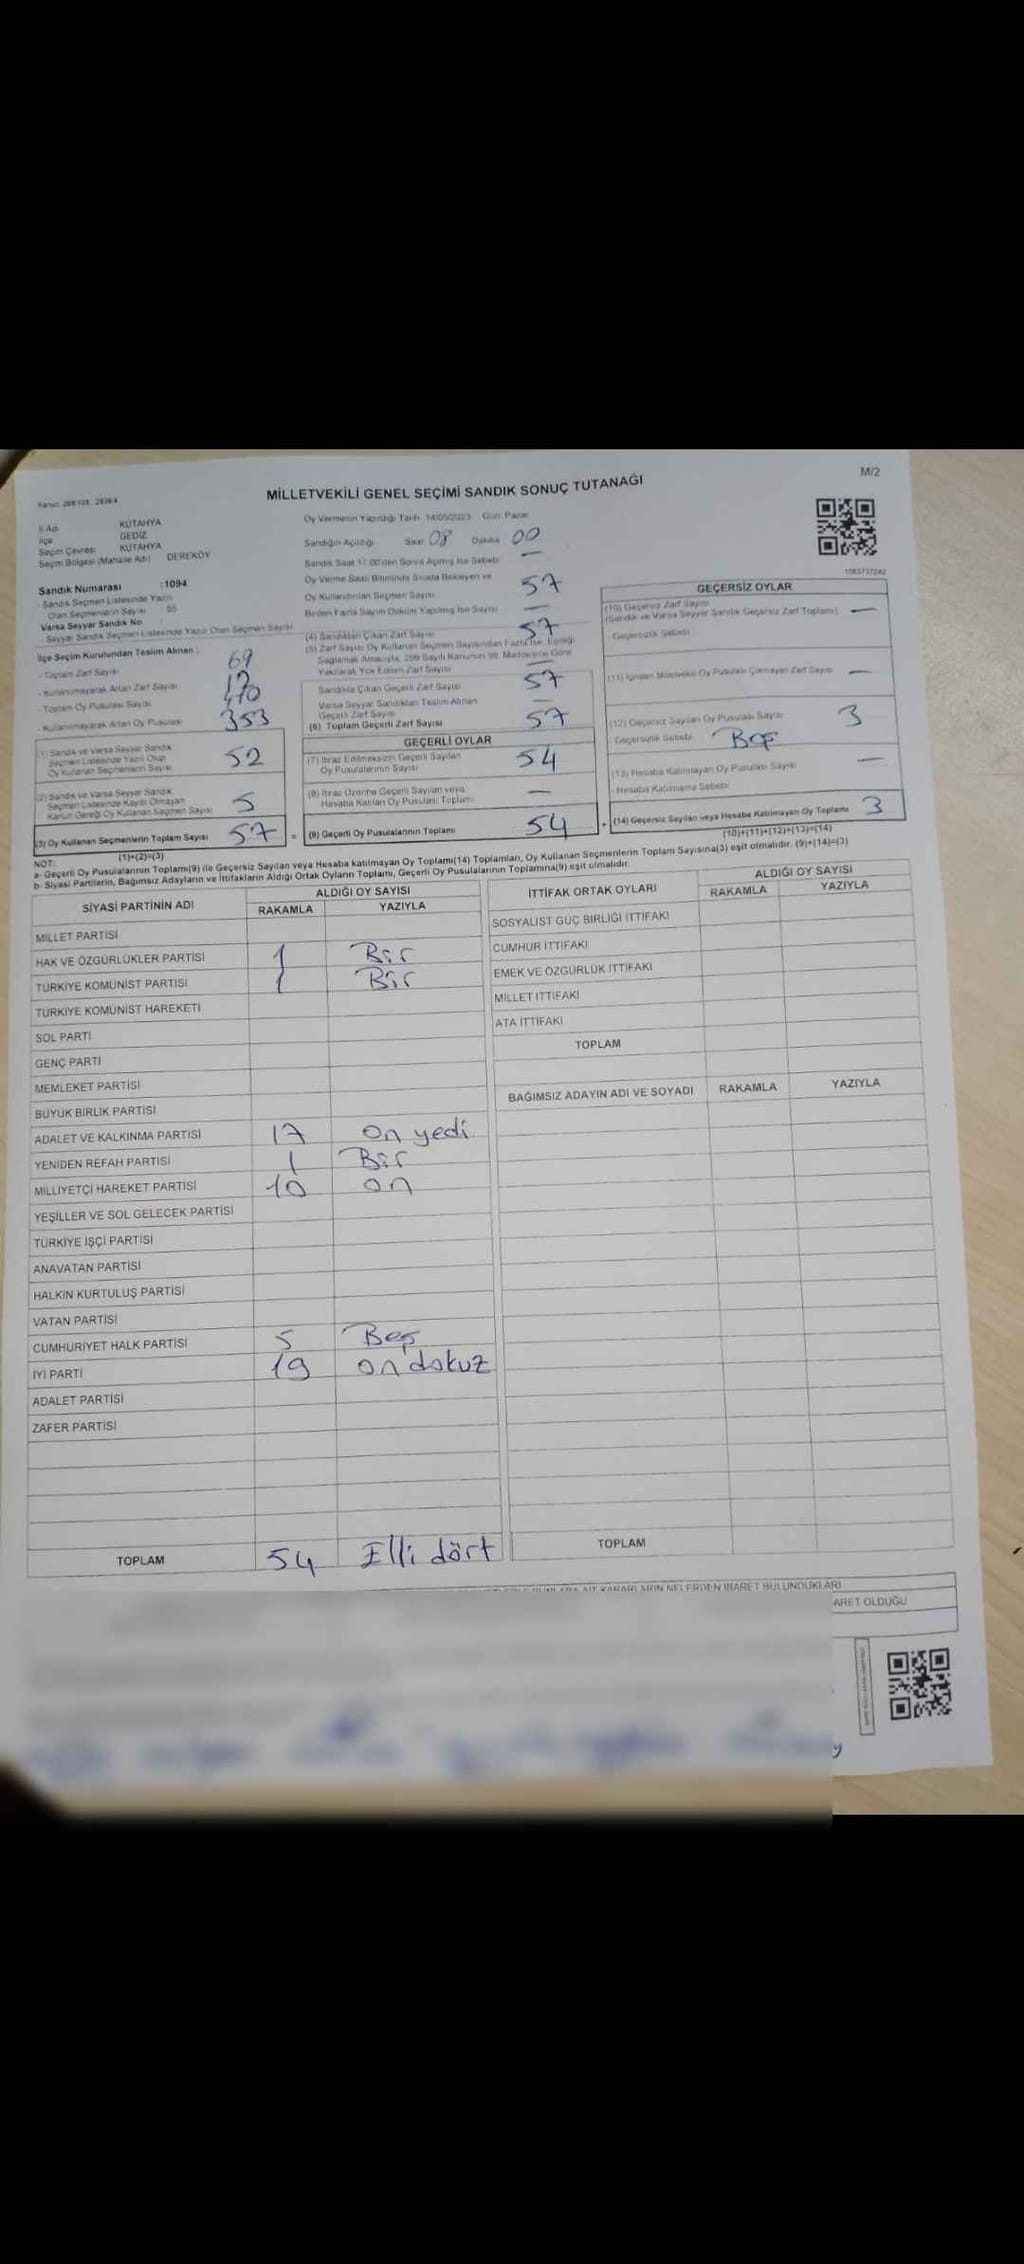 M/2
MİLLETVEKİLİ GENEL SEÇİMİ SANDIK SONUÇ TUTANAĞI
İl Adı KÜTAHYA
İlçe GEDİZ
Seçim Çevresi KÜTAHYA
Seçim Bölgesi (Mahalle Adı) DEREKÖY
Sandık Numarası :1094
- Sandık Seçmen Listesinde Yazılı
Olan Seçmenlerin Sayısı 55
Varsa Seyyar Sandık No
- Seyyar Sandık Seçmen Listesinde Yazılı Olan Seçmen Sayısı
İlçe Seçim Kurulundan Teslim Alınan :
- Toplam Zarf Sayısı 69
- Kullanılmayarak Artan Zarf Sayısı 12
- Toplam Oy Pusulası Sayısı 410
- Kullanılmayarak Artan Oy Pusulası 353
(1) Sandık ve Varsa Seyyar Sandık
Seçmen Listesinde Yazılı Olup
Oy Kullanan Seçmenlerin Sayısı 52
(2) Sandık ve Varsa Seyyar Sandık
Seçmen Listesinde Kaydı Olmayan
Kanun Gereği Oy Kullanan Seçmen Sayısı 5
(3) Oy Kullanan Seçmenlerin Toplam Sayısı 57 =
(1)+(2)=(3)
Oy Vermenin Yapıldığı Tarih 14/05/2023 Gün Pazar
Sandığın Açıldığı Saat 08 Dakika 00
Sandık Saat 17.00'den Sonra Açılmış İse Sebebi —
Oy Verme Saati Bitiminde Sırada Bekleyen ve
Oy Kullandırılan Seçmen Sayısı 57
Birden Fazla Sayım Döküm Yapılmış İse Sayısı —
(4) Sandıktan Çıkan Zarf Sayısı 57
(5) Zarf Sayısı Oy Kullanan Seçmen Sayısından Fazla İse, Eşitliği
Sağlamak Amacıyla, 298 Sayılı Kanunun 98. Maddesine Göre
Yakılarak Yok Edilen Zarf Sayısı —
Sandıkta Çıkan Geçerli Zarf Sayısı 57
Varsa Seyyar Sandıktan Teslim Alınan
Geçerli Zarf Sayısı —
(6) Toplam Geçerli Zarf Sayısı 57
GEÇERLİ OYLAR
(7) İtiraz Edilmeksizin Geçerli Sayılan
Oy Pusulalarının Sayısı 54
(8) İtiraz Üzerine Geçerli Sayılan veya
Hesaba Katılan Oy Pusulası Toplamı —
(9) Geçerli Oy Pusulalarının Toplamı 54 +
1083737242
GEÇERSİZ OYLAR
(10) Geçersiz Zarf Sayısı
(Sandık ve Varsa Seyyar Sandık Geçersiz Zarf Toplamı) —
- Geçersizlik Sebebi
(11) İçinden Milletvekili Oy Pusulası Çıkmayan Zarf Sayısı —
(12) Geçersiz Sayılan Oy Pusulası Sayısı 3
- Geçersizlik Sebebi Boş
(13) Hesaba Katılmayan Oy Pusulası Sayısı —
- Hesaba Katılmama Sebebi
(14) Geçersiz Sayılan veya Hesaba Katılmayan Oy Toplamı 3
(10)+(11)+(12)+(13)=(14)
NOT:
a- Geçerli Oy Pusulalarının Toplamı(9) ile Geçersiz Sayılan veya Hesaba katılmayan Oy Toplamı(14) Toplamları, Oy Kullanan Seçmenlerin Toplam Sayısına(3) eşit olmalıdır. (9)+(14)=(3)
b- Siyasi Partilerin, Bağımsız Adayların ve İttifakların Aldığı Ortak Oyların Toplamı, Geçerli Oy Pusulalarının Toplamına(9) eşit olmalıdır.
SİYASİ PARTİNİN ADI ALDIĞI OY SAYISI
RAKAMLA YAZIYLA
MİLLET PARTİSİ
HAK VE ÖZGÜRLÜKLER PARTİSİ 1 Bir
TÜRKİYE KOMÜNİST PARTİSİ 1 Bir
TÜRKİYE KOMÜNİST HAREKETİ
SOL PARTİ
GENÇ PARTİ
MEMLEKET PARTİSİ
BÜYÜK BİRLİK PARTİSİ
ADALET VE KALKINMA PARTİSİ 17 On yedi
YENİDEN REFAH PARTİSİ 1 Bir
MİLLİYETÇİ HAREKET PARTİSİ 10 On
YEŞİLLER VE SOL GELECEK PARTİSİ
TÜRKİYE İŞÇİ PARTİSİ
ANAVATAN PARTİSİ
HALKIN KURTULUŞ PARTİSİ
VATAN PARTİSİ
CUMHURİYET HALK PARTİSİ 5 Beş
İYİ PARTİ 19 On dokuz
ADALET PARTİSİ
ZAFER PARTİSİ
TOPLAM 54 Elli dört
İTTİFAK ORTAK OYLARI ALDIĞI OY SAYISI
RAKAMLA YAZIYLA
SOSYALİST GÜÇ BİRLİĞİ İTTİFAKI
CUMHUR İTTİFAKI
EMEK VE ÖZGÜRLÜK İTTİFAKI
MİLLET İTTİFAKI
ATA İTTİFAKI
TOPLAM
BAĞIMSIZ ADAYIN ADI VE SOYADI RAKAMLA YAZIYLA
TOPLAM
KARARLARIN NELERDEN İBARET BULUNDUKLARI
ARET OLDUĞU